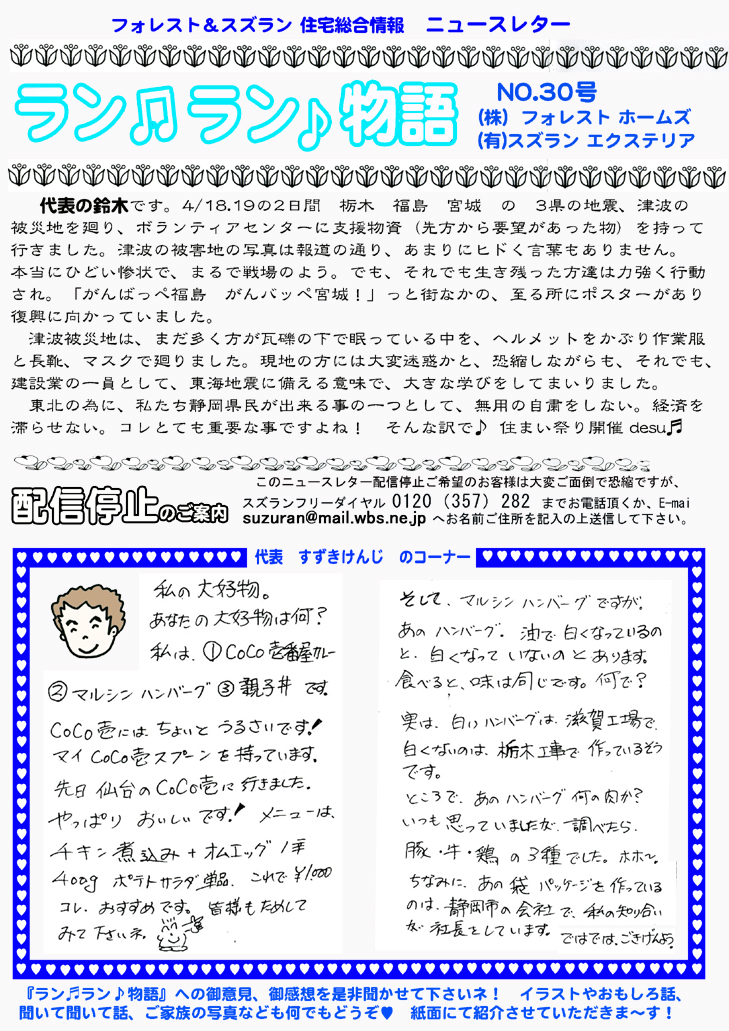 フォレスト＆スズラン 住宅総合情報　ニュースレター
ラン♫ラン♪物語
NO.30号
(株) フォレスト ホームズ
(有)スズラン エクステリア
代表の鈴木です。4/18.19の2日間　栃木　福島　宮城　の　3県の地震、津波の
被災地を廻り、ボランティアセンターに支援物資（先方から要望があった物）を持って
行きました。津波の被害地の写真は報道の通り、あまりにヒドく言葉もありません。
本当にひどい惨状で、まるで戦場のよう。でも、それでも生き残った方達は力強く行動
され。「がんばっぺ福島　がんバッペ宮城！」っと街なかの、至る所にポスターがあり
復興に向かっていました。
津波被災地は、まだ多く方が瓦礫の下で眠っている中を、ヘルメットをかぶり作業服
と長靴、マスクで廻りました。現地の方には大変迷惑かと、恐縮しながらも、それでも、
建設業の一員として、東海地震に備える意味で、大きな学びをしてまいりました。
東北の為に、私たち静岡県民が出来る事の一つとして、無用の自粛をしない。経済を
滞らせない。コレとても重要な事ですよね！　そんな訳で♪ 住まい祭り開催 desu♬
配信停止のご案内
このニュースレター配信停止ご希望のお客様は大変ご面倒で恐縮ですが、
スズランフリーダイヤル 0120（357）282 までお電話頂くか、E-mai
suzuran@mail.wbs.ne.jp へお名前ご住所を記入の上送信して下さい。
代表　すずきけんじ　のコーナー
私の大好物。
あなたの大好物は何？
私は、①CoCo壱番屋カレー
②マルシンハンバーグ ③親子丼 です。
CoCo壱には ちょいと うるさいです！
マイCoCo壱スプーンを持っています。
先日 仙台のCoCo壱に行きました。
やっぱり おいしいです！ メニューは、
チキン煮込み＋オムエッグ 1辛
400g ポテトサラダ単品、これで¥1,000
コレ、おすすめです。皆様もためして
みて下さいネ。
そして、マルシンハンバーグですが。
あのハンバーグ。油で白くなっているの
と、白くなっていないのとあります。
食べると、味は同じです。何で？
実は、白いハンバーグは、滋賀工場で、
白くないのは、栃木工事で作っているそう
です。
ところで、あのハンバーグ何の肉か？
いつも思っていましたが、調べたら、
豚・牛・鶏の3種でした。ホホ〜。
ちなみに、あの袋パッケージを作っている
のは、静岡市の会社で、私の知り合い
が社長をしています。ではでは、ごきげんよう
『ラン♬ラン♪物語』への御意見、御感想を是非聞かせて下さいネ！　イラストやおもしろ話、
聞いて聞いて話、ご家族の写真なども何でもどうぞ♥　紙面にて紹介させていただきま〜す！